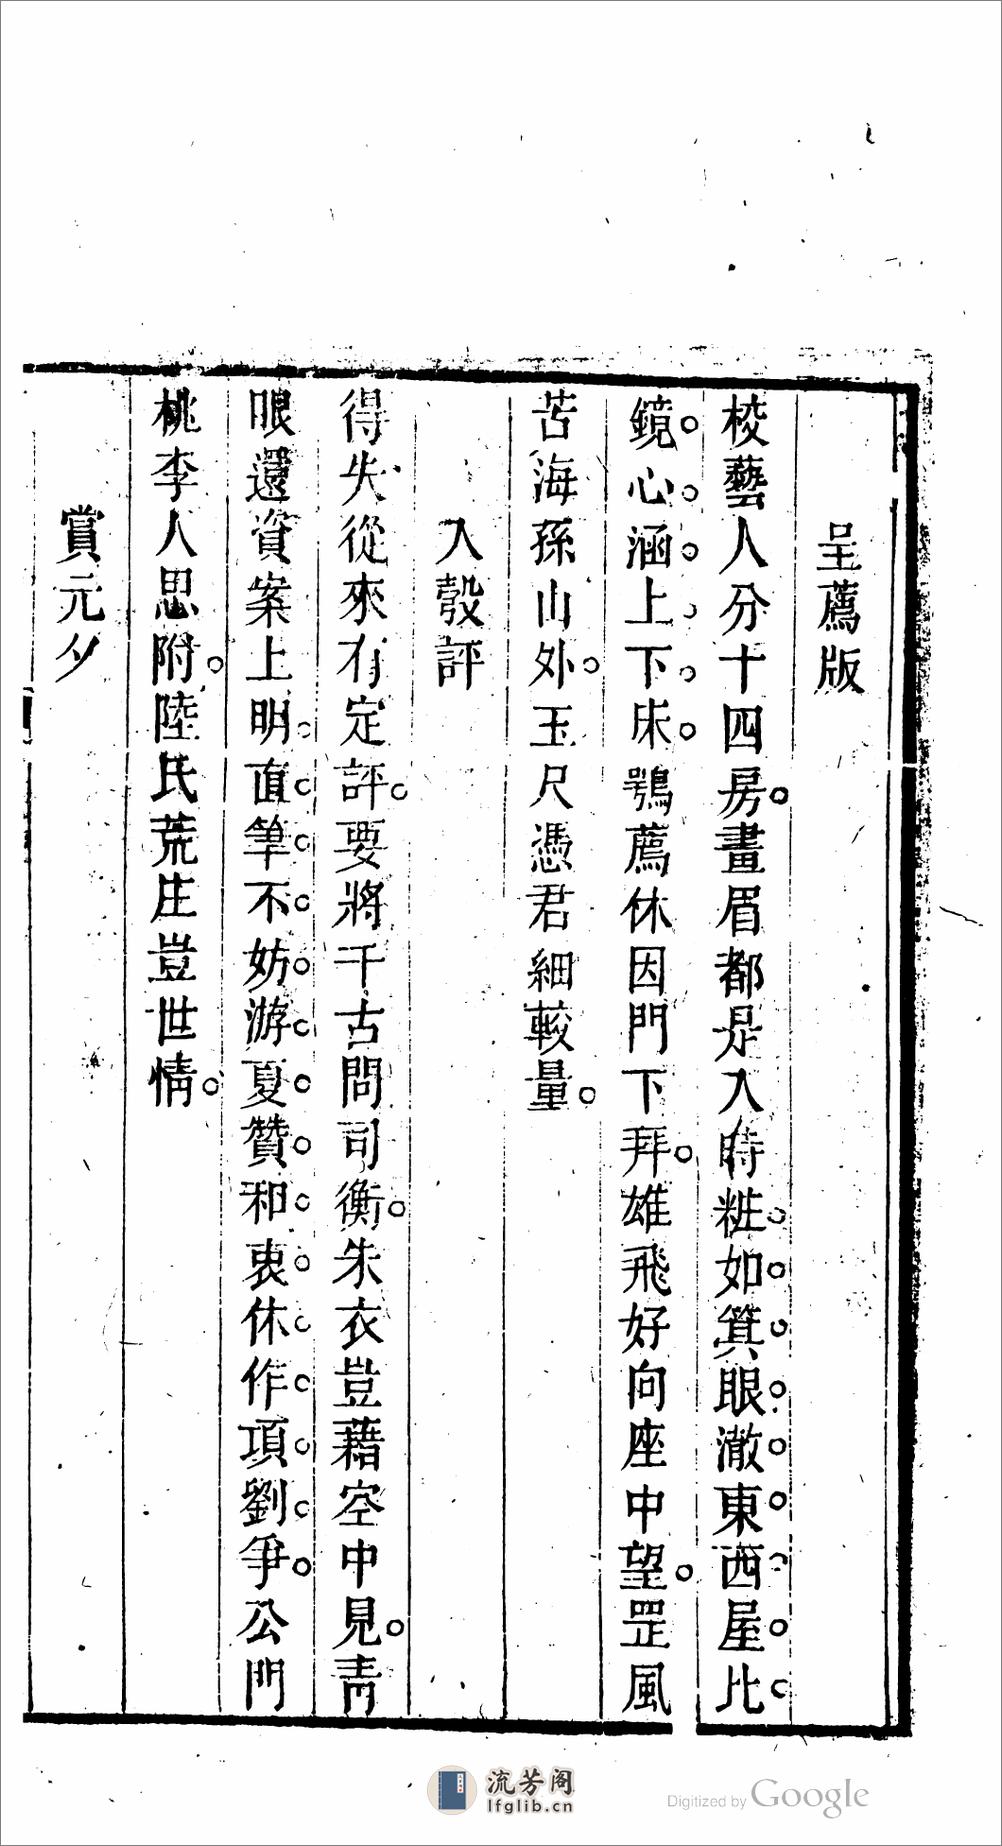 呈薦版
校藝人分十四房畫眉都是入時粧如箕眼澈東西屋比
鏡心涵上下床鶚薦休因門下拜雄飛好向座中望罡風
苦海孫山外玉尺憑君細較量
入彀評
得失從來有定評要將千古問司衡朱衣豈藉空中見青
眼還資案上明直筆不妨游夏贊和衷休作項劉爭公門
桃李人思附陸氏荒庄豈世情
賞元夕
流芳阁
lfglib.cn
Digitized by Google